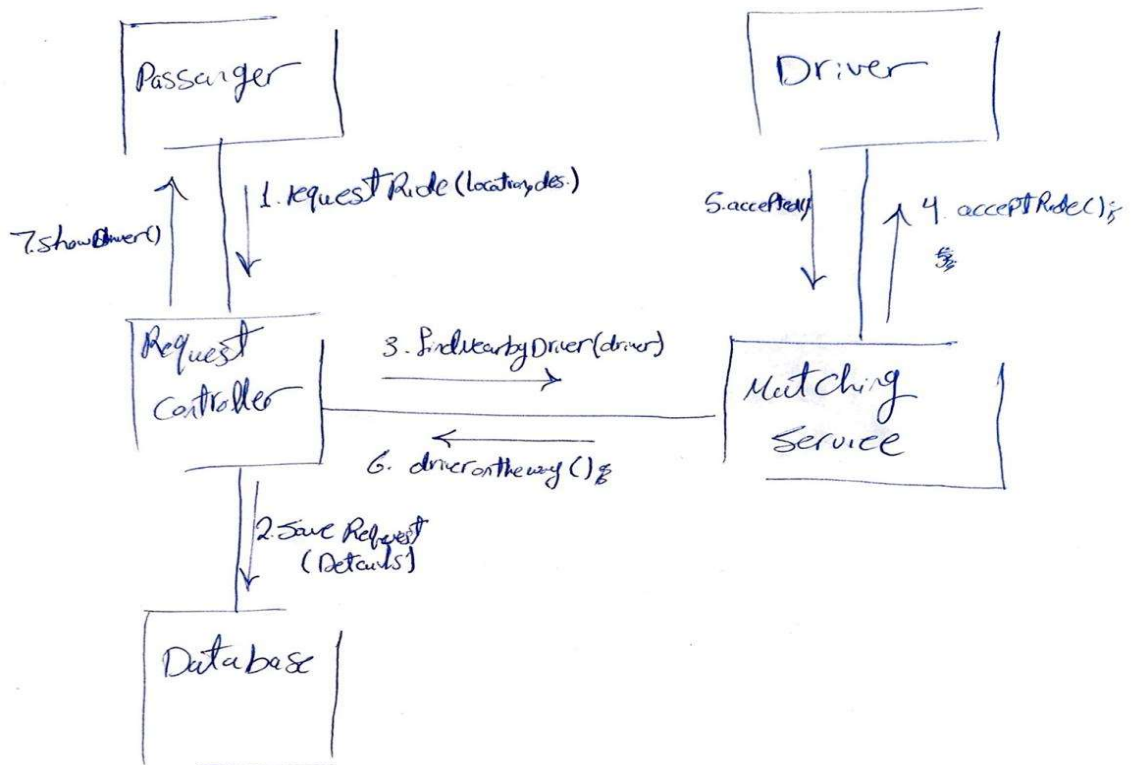 Passanger
Driver
1. requestRide (location, des.)
7. showDriver()
5. accepted()
4. acceptRide();
Request
Controller
3. findNearbyDriver(driver)
Matching
Service
6. driverontheway();
2. Save Request
(Details)
Database